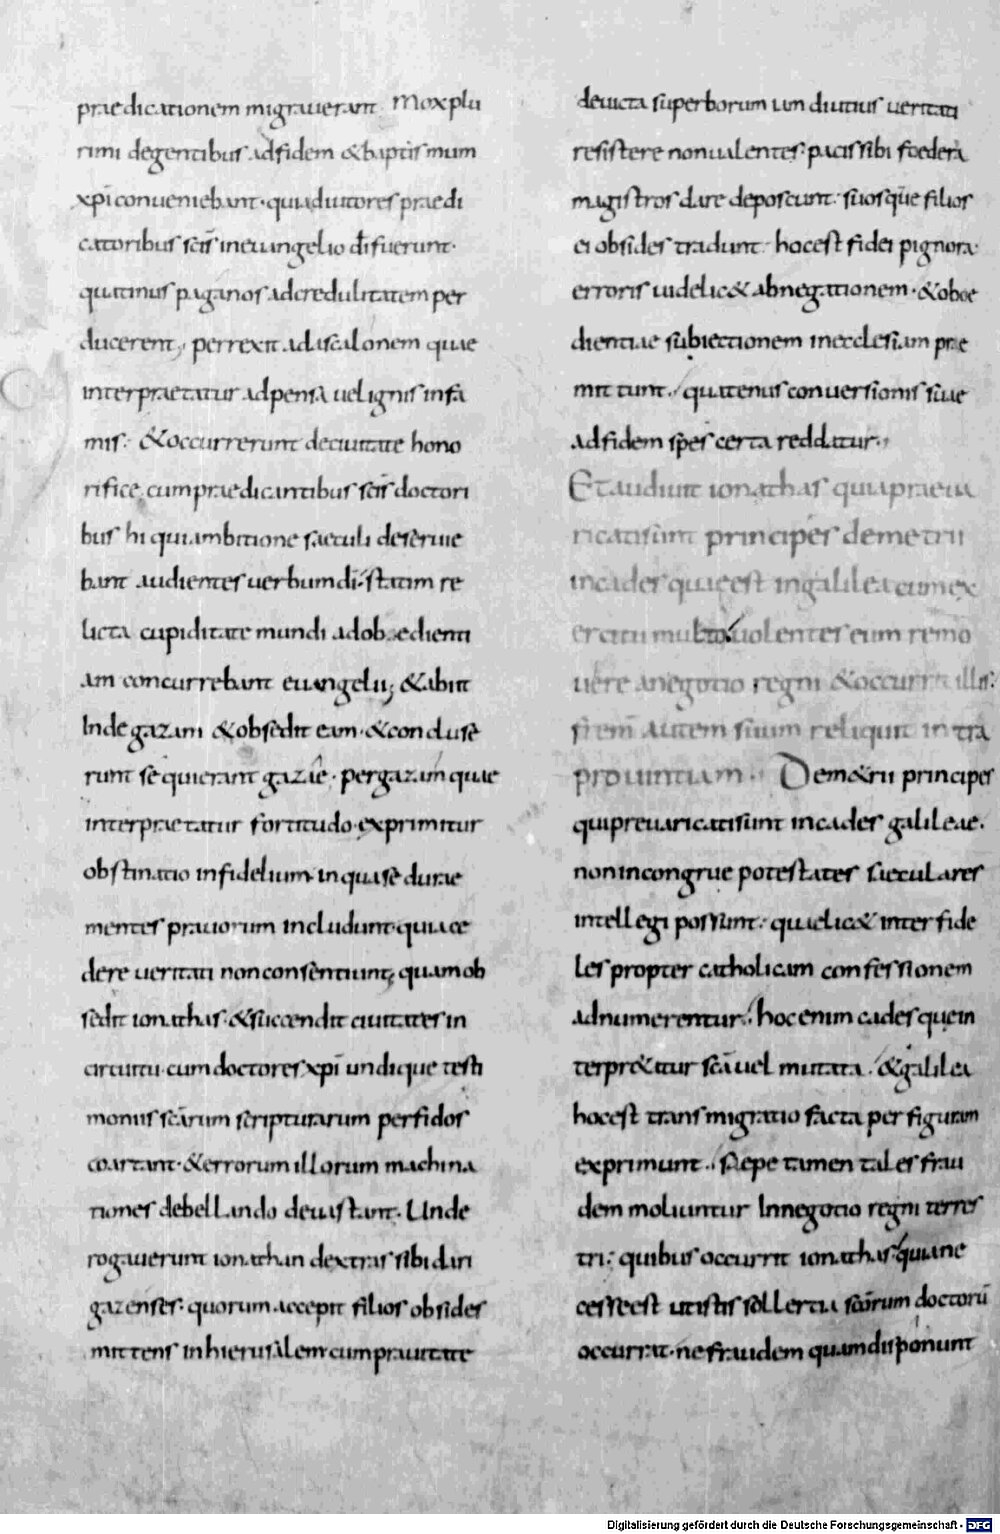 praedicationem migrauerant Mox plu
rimi degentibus ad fidem & baptismum
xpi conueniebant · qui adiutores praedi
catoribus scis in euangelio di fuerunt·
quatinus paganos ad credulitatem per
ducerent, perrexit ad ascalonem quae
interpraetatur adpensa uel ignis infa
mis: & occurrerunt de ciuitate hono
rifice, cum praedicantibus scis doctori
bus hi qui ambitione saeculi deserue
bant audientes uerbum di· statim re
licta cupiditate mundi ad oboedienti
am concurrebant euangelii; & abiit
Inde gazam & obsedit eam · & concluse
runt se qui erant gazae · per gazam quae
interpraetatur fortitudo · exprimitur
obstinatio infidelium in qua se durae
mentes prauorum includunt· quia ce
dere ueritati non consentiunt; quam ob
sedit ionathas · & succendit ciuitates in
circuitu · cum doctores xpi undique testi
moniis scarum scripturarum perfidos
coartant · & errorum illorum machina
tiones debellando deuastant. Unde
rogauerunt ionathan dextras sibi dari
gazenses· quorum accepit filios obsides
mittens in hierusalem cum prauitate
deuicta superborum uim diutius ueritati
resistere non ualentes· pacis sibi foedera
magistros dare deposcunt· suosque filios
ei obsides tradunt· hoc est fidei pignora·
erroris uidelic& abnegationem · & oboe
dientiae subiectionem in ecclesiam prae
mittunt· quatenus conuersionis suae
ad fidem spes certa reddatur·
Et audiuit ionathas quia praeua
ricati sunt principes demetrii
in cades quae est in galilea cum ex
ercitu multo· uolentes eum remo
uere a negotio regni & occurrit illis:
frem autem suum reliquit intra
prouintiam · Dem&rii principes
qui preuaricati sunt in cades galileae.
non incongrue potestates saeculares
intellegi possunt· quae lic& inter fide
les propter catholicam confessionem
adnumerentur· hoc enim cades que in
terpr&atur sca uel mutata · & galilea
hoc est transmigratio facta per figuram
exprimunt · Saepe tamen tales frau
dem moliuntur In negotio regni terres
tri: quibus occurrit ionathas· quia ne
cesse est ut istis sollertia scorum doctoru
occurrat· ne fraudem quam disponunt
Digitalisierung gefördert durch die Deutsche Forschungsgemeinschaft - DFG